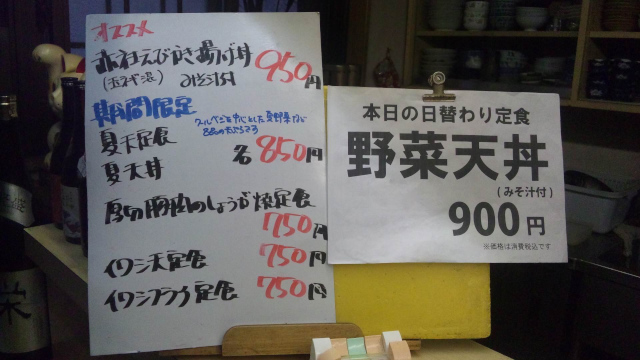 オススメ
赤社えびかき揚げ丼 950円
(玉ネギ混) みそ汁付
期間限定
夏天定食
夏天丼 各850円
厚切豚肉のしょうが焼定食
750円
イワシ天定食 750円
イワシフライ定食 750円
本日の日替わり定食
野菜天丼
(みそ汁付)
900円
※価格は消費税込です